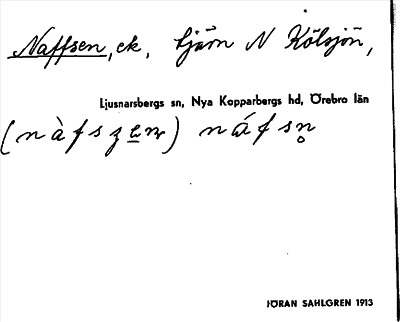 Naffsen, ek, tjärn N Kölsjön,
Ljusnarsbergs sn, Nya Kopparbergs hd, Örebro län
(nàfszen) náfsn̥
JÖRAN SAHLGREN 1913